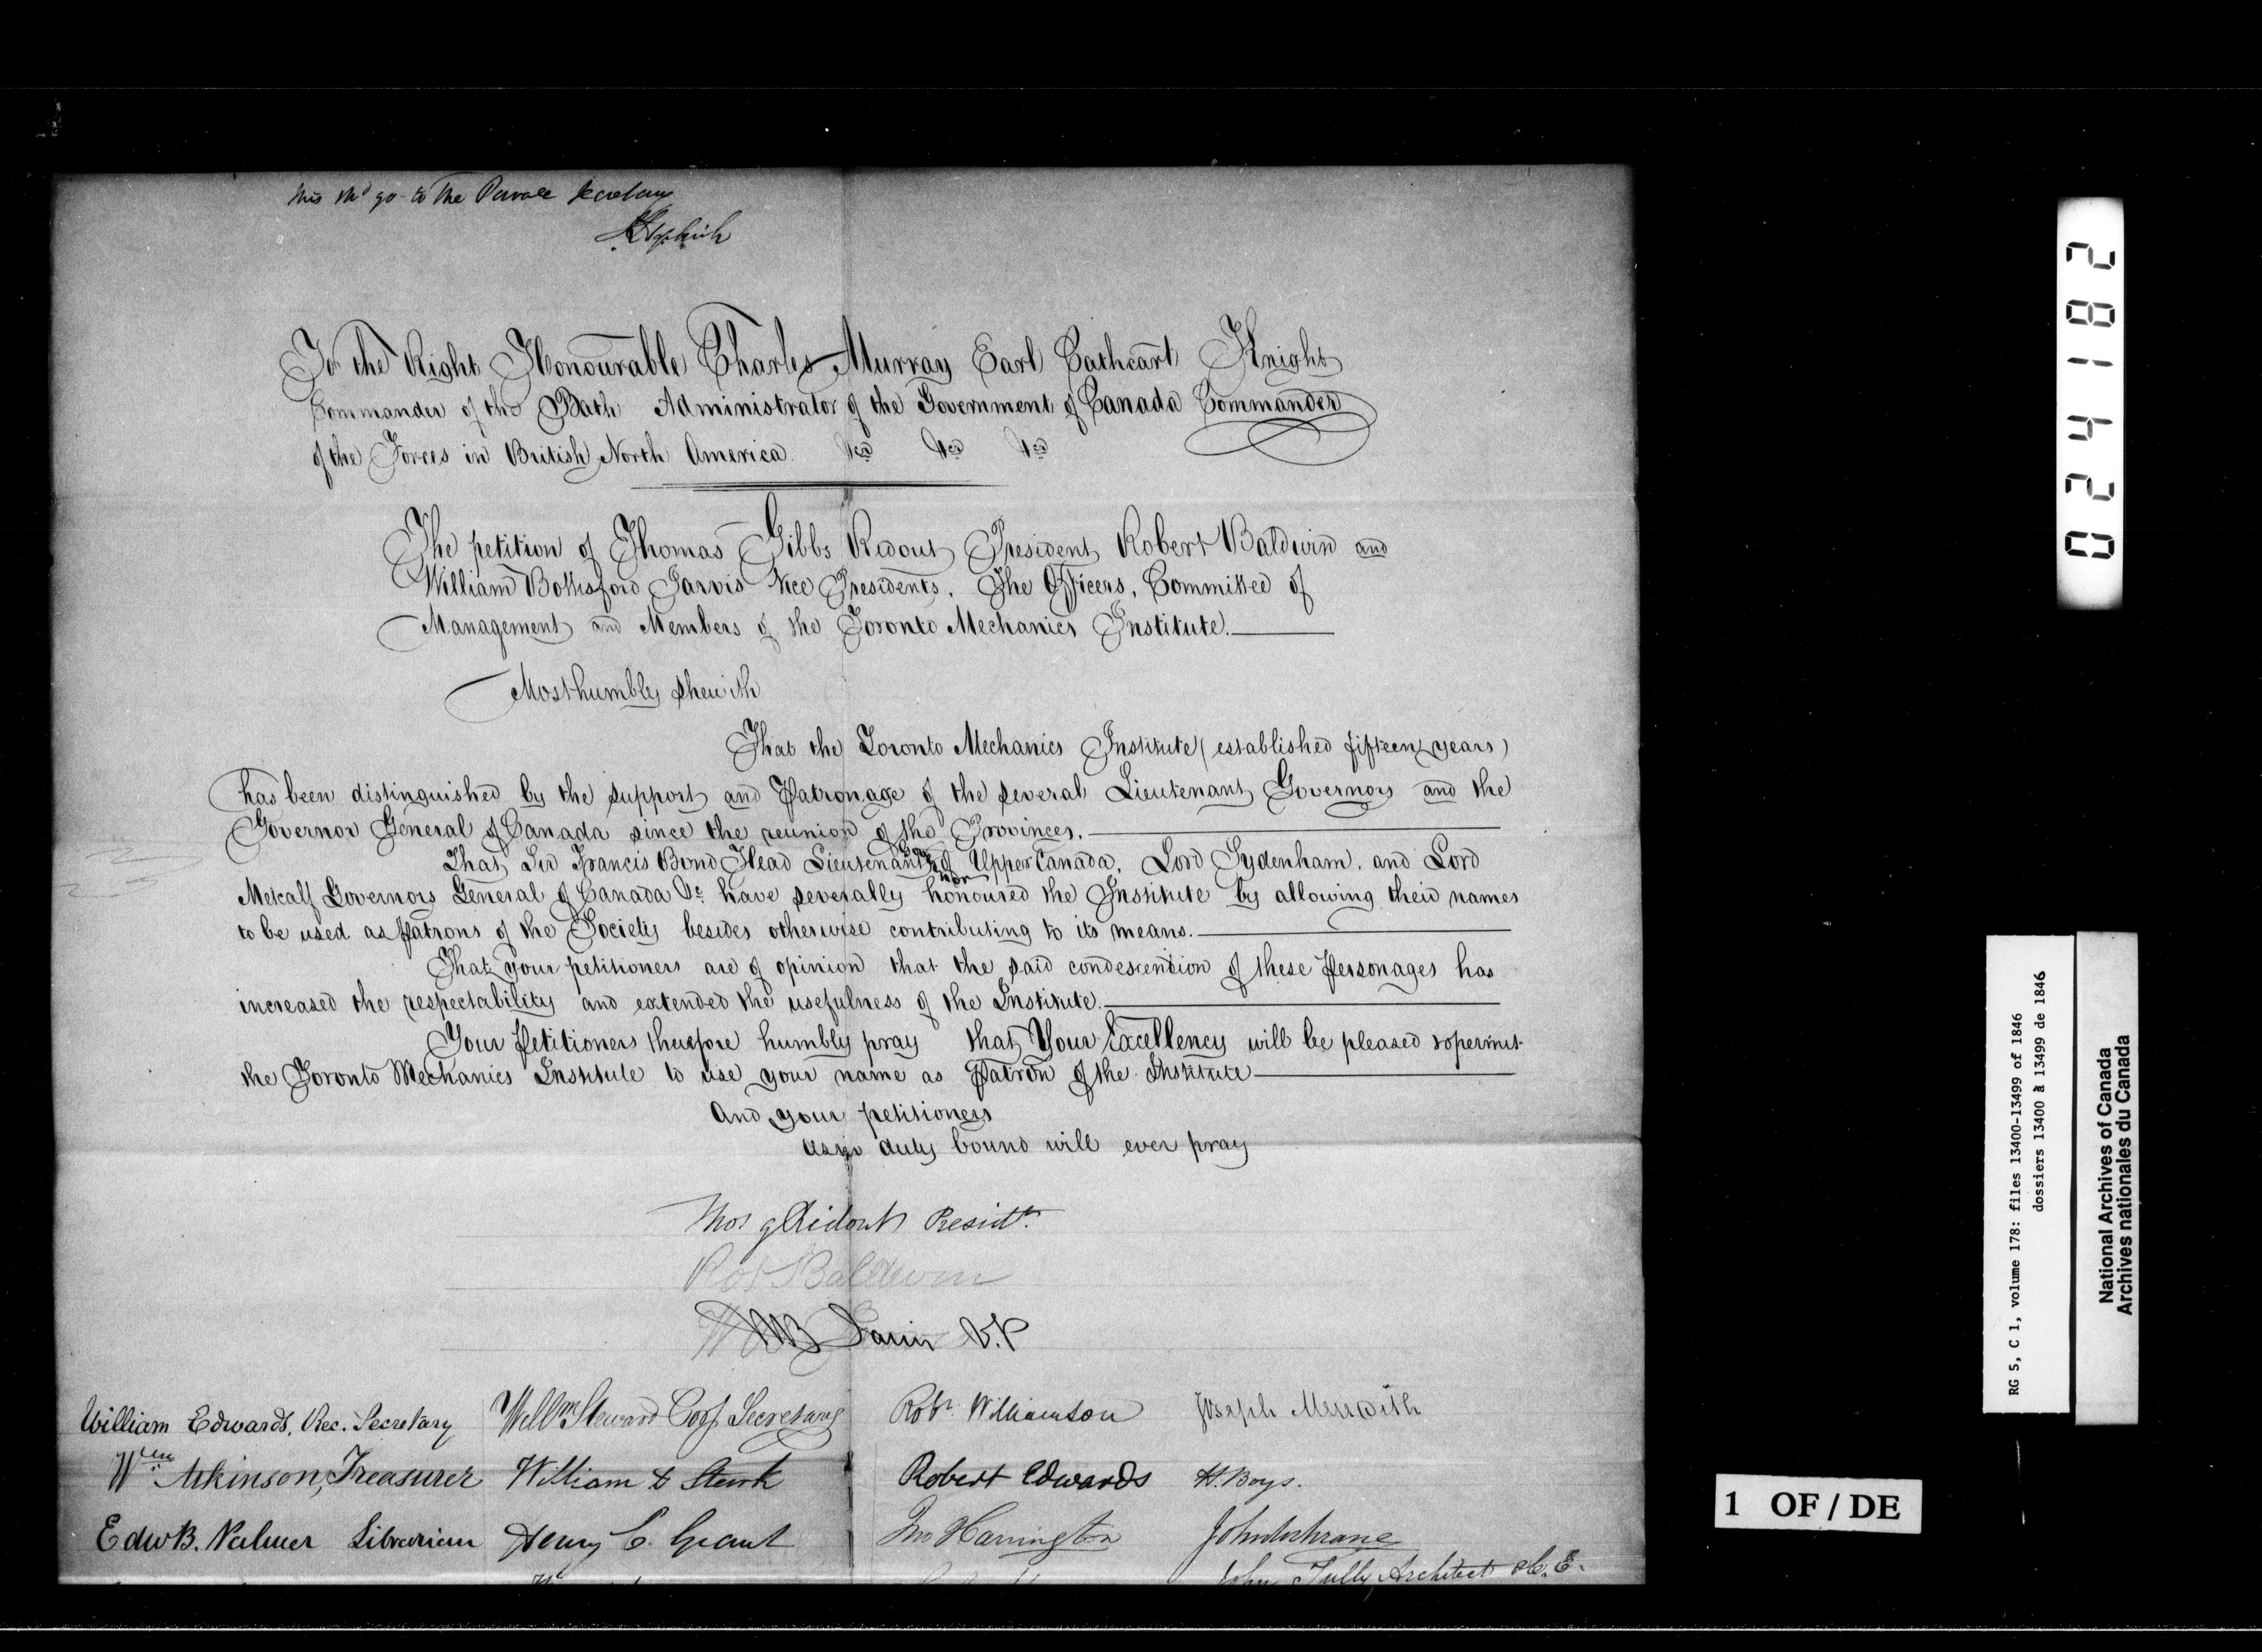 This shd go to the Private Secretary
To the Right Honourable Charles Murray Earl Cathcart Knight
Commander of the Bath Administrator of the Government of Canada Commander
of the Forces in British North America &ca &ca &ca
The petition of Thomas Gibbs Ridout President Robert Baldwin and
William Bothsford Jarvis Vice Presidents, The Officers, Committee of
Management and Members of the Toronto Mechanics Institute.
Most humbly sheweth
That the Toronto Mechanics Institute (established fifteen years)
has been distinguished by the support and Patronage of the several Lieutenant Governors and the
Governor General of Canada since the reunion of the Provinces.
That Sir Francis Bond Head Lieutenant Governor of Upper Canada, Lord Sydenham, and Lord
Metcalf Governors General of Canada &c have severally honoured the Institute by allowing their names
to be used as Patrons of the Society besides otherwise contributing to its means.
That your petitioners are of opinion that the said condescention of these Personages has
increased the respectability and extended the usefulness of the Institute.
Your Petitioners therefore humbly pray that Your Excellency will be pleased to permit
the Toronto Mechanics Institute to use your name as Patron of the Institute
And your petitioners
as in duty bound will ever pray
Thos G Ridout Presidt.
Robt Baldwin
W B Jarvis V.P
William Edwards, Rec. Secretary Willm Steward Corr Secretary Robt. Williamson Joseph
Wm Atkinson, Treasurer William Robert Edwards H. Boys.
Edw B. Palmer Librarian Henry C. Grant Jno Harrington John Cochrane
John Tully Architect & C. E.
024182
RG 5, C 1, volume 178: files 13400-13499 of 1846
dossiers 13400 à 13499 de 1846
National Archives of Canada
Archives nationales du Canada
1 OF / DE